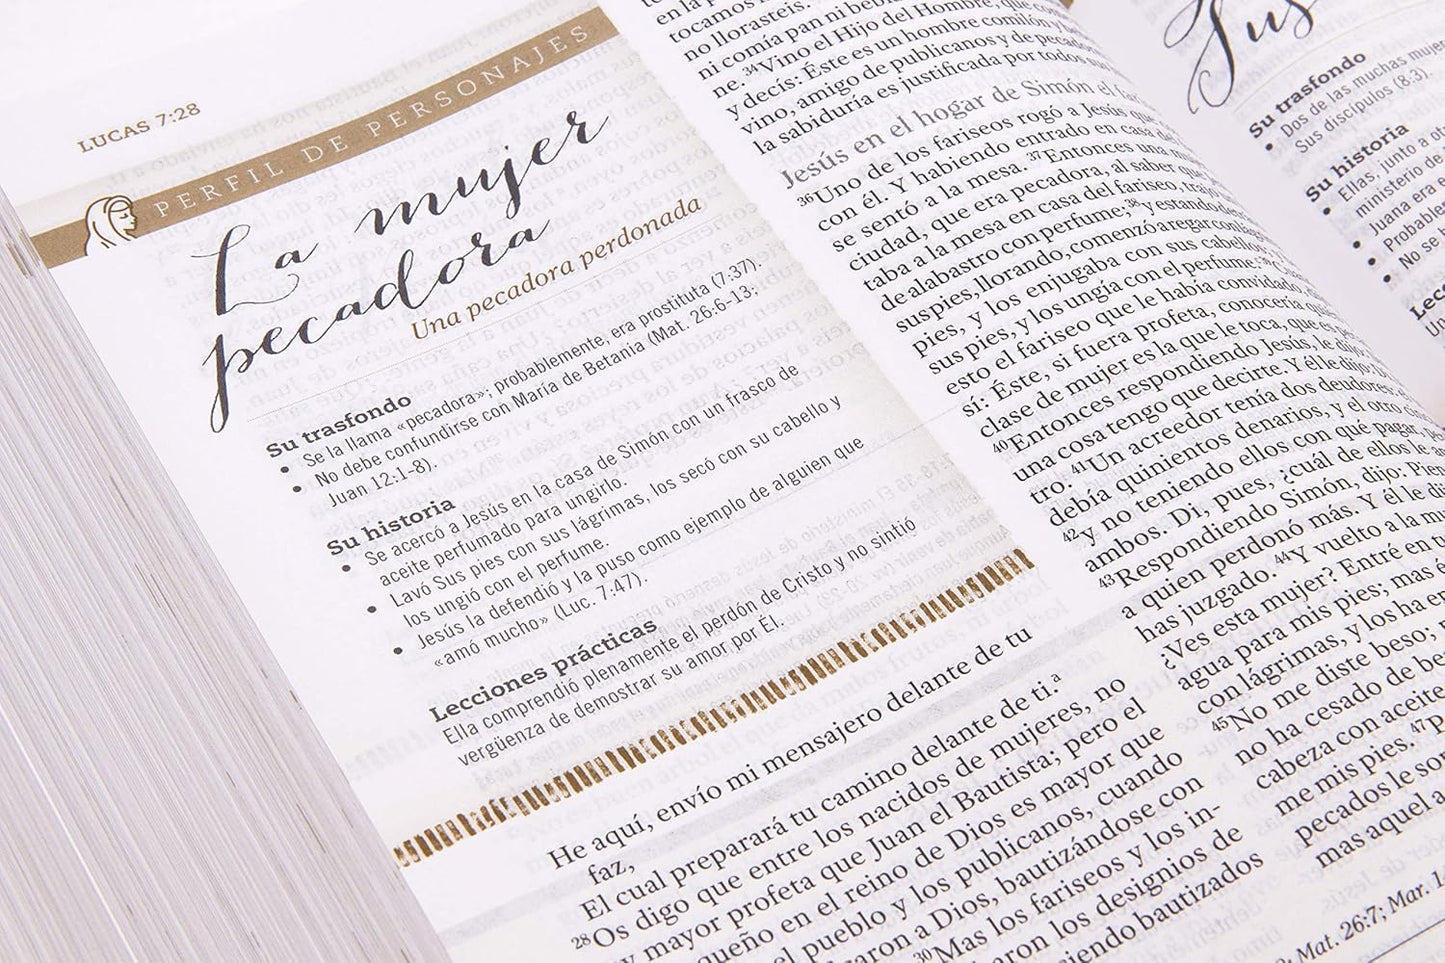 LUCAS 7:28
PERFIL DE PERSONAJES
La mujer
pecadora
Una pecadora perdonada
Su trasfondo
• Se llama «pecadora»; probablemente, era prostituta (7:37).
• No debe confundirse con María de Betania (Mat. 26:6-13;
Juan 12:1-8).
Su historia
• Se acercó a Jesús en la casa de Simón con un frasco de
aceite perfumado para ungirlo.
• Lavó Sus pies con sus lágrimas, los secó con su cabello y
los ungió con el perfume.
• Jesús la defendió y la puso como ejemplo de alguien que
«amó mucho» (Luc. 7:47).
Lecciones prácticas
Ella comprendió plenamente el perdón de Cristo y no sintió
vergüenza de demostrar su amor por Él.
He aquí, envío mi mensajero delante de tu
faz,
El cual preparará tu camino delante de ti.ª
28Os digo que entre los nacidos de mujeres, no
mayor profeta que Juan el Bautista; pero el
queño en el reino de Dios es mayor que
el pueblo y los publicanos, cuando
a Dios, bautizándose con
30Mas los fariseos y los in-
los designios de
bautizados
en la
tocamos
no llorasteis.
ni comía pan ni
ne. 34Vino el Hijo del Hombre, que
y decís: Éste es un hombre comilón y
vino, amigo de publicanos y de
la sabiduría es justificada por todos
Jesús en el hogar de Simón el
36Uno de los fariseos rogó a Jesús que
con él. Y habiendo entrado en casa
se sentó a la mesa. 37Entonces una
ciudad, que era pecadora, al saber que
taba a la mesa en casa del fariseo, trajo
de alabastro con perfume; 38y estando
sus pies, llorando, comenzó a regar con
pies, y los enjugaba con sus cabellos
sus pies, y los ungía con el perfume. 39
esto el fariseo que le había convidado
sí: Éste, si fuera profeta, conocería
clase de mujer es la que le toca, que es
40Entonces respondiendo Jesús, le dijo:
una cosa tengo que decirte. Y él le dijo:
tro. 41Un acreedor tenía dos deudores:
debía quinientos denarios, y el otro
42y no teniendo ellos con qué pagar,
ambos. Di, pues, ¿cuál de ellos le
43Respondiendo Simón, dijo:
a quien perdonó más. Y él le
has juzgado. 44Y vuelto a la
¿Ves esta mujer? Entré en
agua para mis pies; mas
con lágrimas, y los ha
45No me diste beso;
no ha cesado de
cabeza con aceite
me mis pies. 47
pecados le
mas aquel a
Mat. 26:7; Mar.
Su trasfondo
• Dos de las muchas
Sus discípulos (8:3).
Su historia
• Ellas, junto a
ministerio de
• Juana era
•
• No se